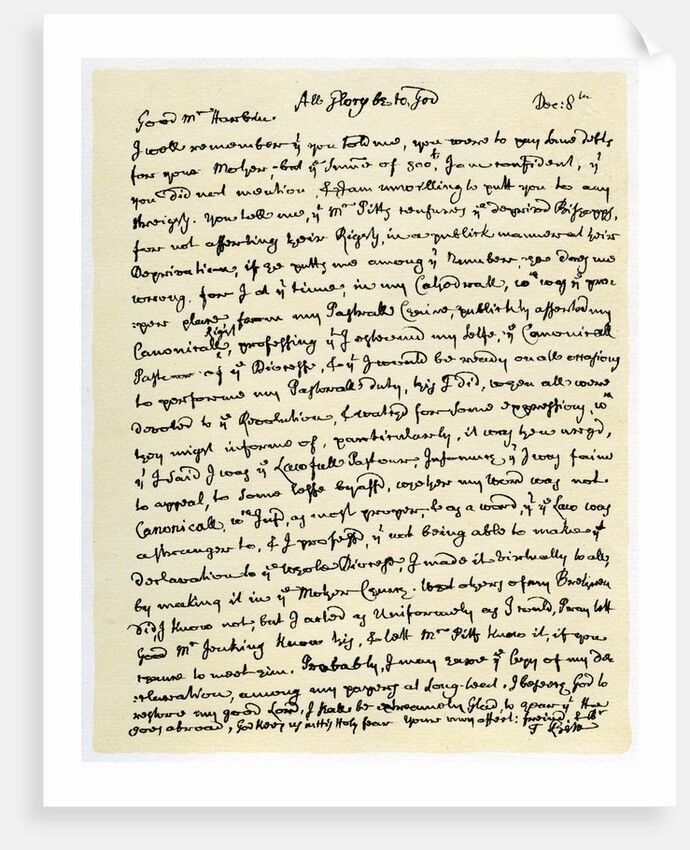 All Glory be to God Dec: 8th
Good Mr Harbin.
I well remember yt you told me, you were to pay some debts
for your Mother, but ye summe of 500l, I am confident, yt
you did not mention, & I am unwilling to putt you to any
streights. You tell me, yt Mr Pitts censures ye deprived Bishopps,
for not asserting their Right, in a publick manner at their
Deprivation, if he putts me among yt Number, he does me
wrong. for I at yt time, in my Cathedrall, wch was ye pro-
:per place from my Pastorall Chaire, publickly asserted my
Canonicall Right, professing yt I esteemed my selfe, ye Canonicall
Pastour of ye Diocesse, & yt I would be ready on all occasions
to performe my Pastorall duty, this I did, when all were
devoted to ye Revolution, & waited for some expressions, wch
they might informe of, particularly, it was then urged,
yt I said I was ye Lawfull Pastour, Insomuch yt I was faine
to appeal, to some lesse byassd, whether my word was not
Canonicall, wch I usd, as most proper, & as a word, yt ye Law was
a stranger to, & I professd, yt not being able to make yt
declaration to ye whole Diocesse, I made it virtually to all,
by making it in ye Mother Church. What others of my Brethren
did, I know not, but I acted as Uniformely as I could, Pray lett
Good Mr Jenkins know this, & lett Mr Pitts know it, if you
chance to meet him. Probably, I may have ye Copy of my de
:claration, among my papers at Long-leat. I beseech God to
restore my good Lord, I shall be extreamely Glad, to hear yt He
goes abroad, God keep us in his Holy fear Your own affect: freind, & Br
T